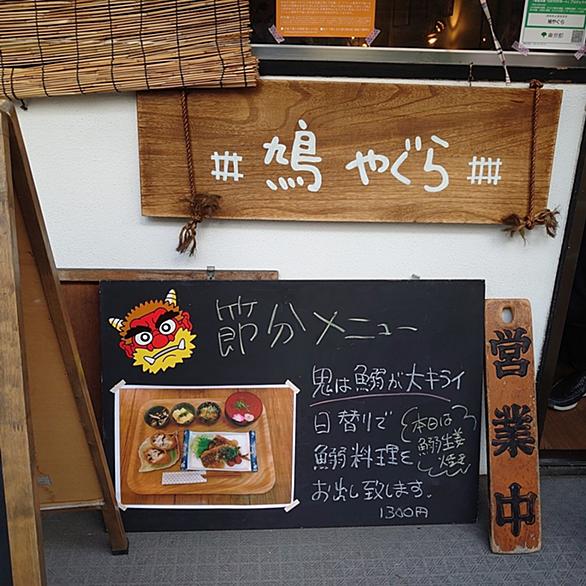 鳩やぐら
東京都
鳩 やぐら
節分メニュー
鬼は鰯が大キライ
日替りで
鰯料理を
お出し致します。
1300円
本日は
鰯生姜
焼き
営業中